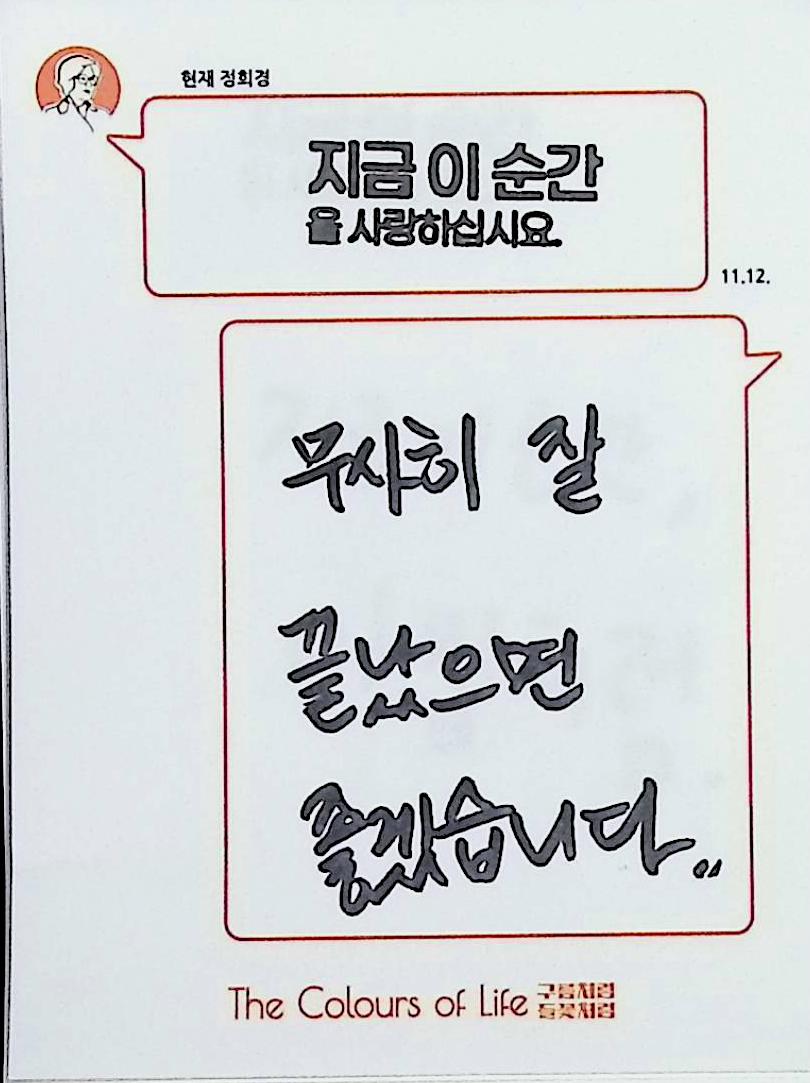 현재 정희경
지금 이 순간
을 사랑하십시요.
11.12.
무사히 잘
끝났으면
좋겠습니다..
The Colours of Life 구름처럼
들꽃처럼